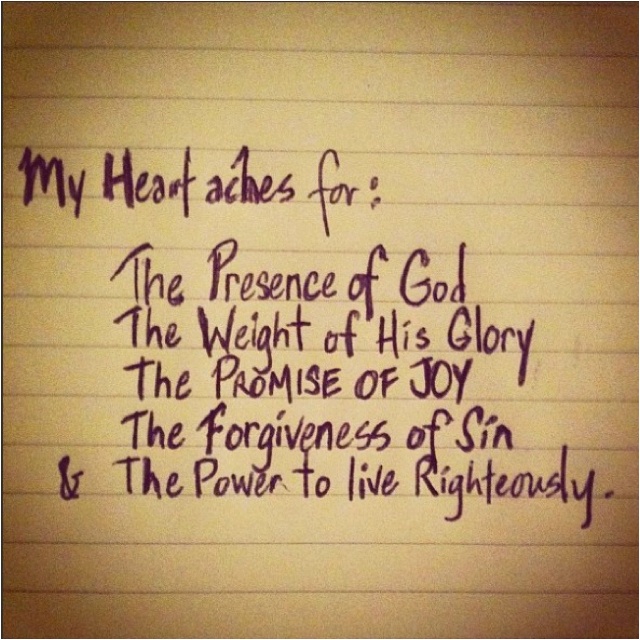 My Heart aches for:
The Presence of God
The Weight of His Glory
The PROMISE OF JOY
The Forgiveness of Sin
& The Power to live Righteously.